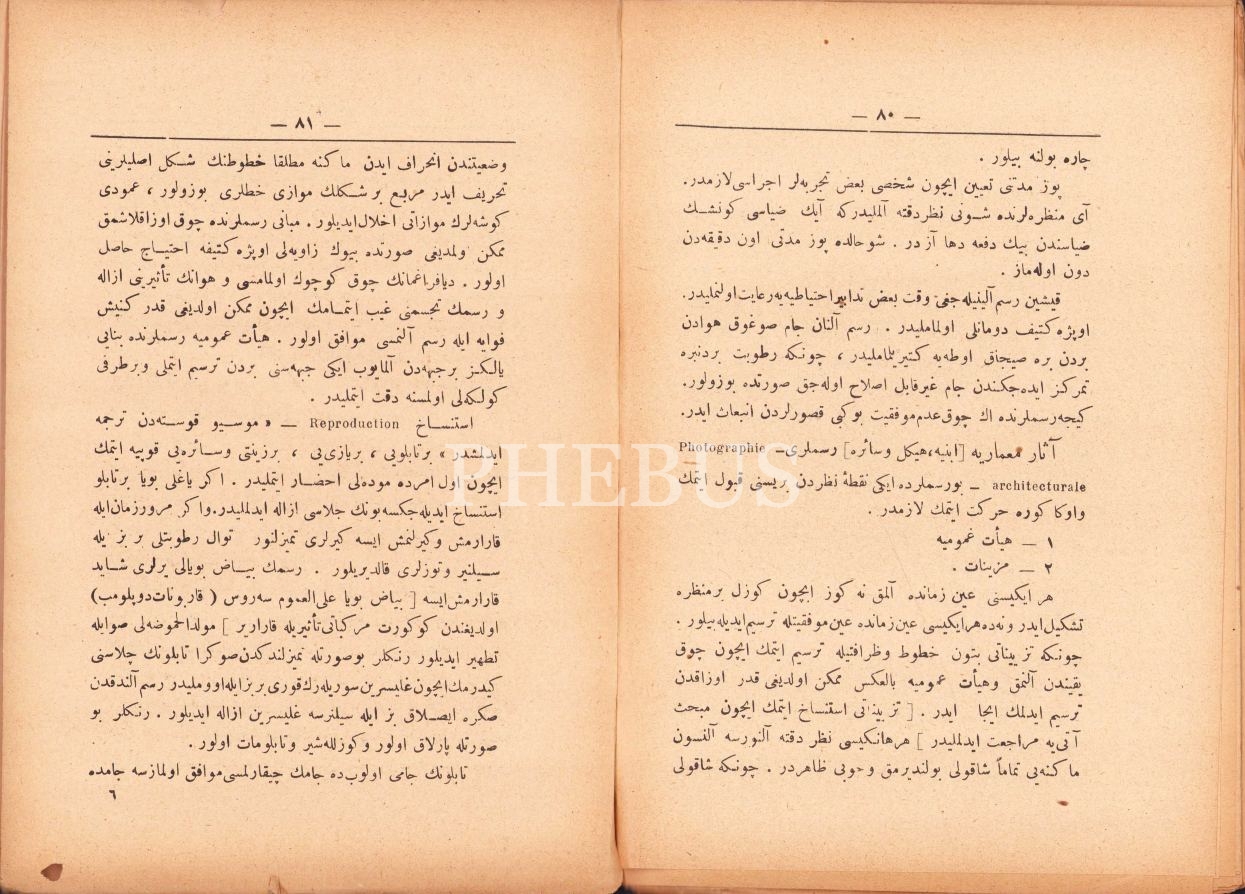 — ٨٠ —
چاره بولنه بيلور .
پوز مدتنى تعيين ايچون شخصى بعض تجربه‌لر اجراسى لازمدر.
آى منظره‌لرنده شونى نظر دقته آلمليدركه آيك ضياسى كونشك
ضياسندن بيك دفعه دها آز در . شو حالده پوز مدتى اون دقيقه‌دن
دون اوله‌ماز .
قيشين رسم آلينيله‌جغى وقت بعض تدابير احتياطيه‌يه رعايت اولنمليدر.
اوبژه كتيف دومانلى اولماملیدر . رسم آلنان جام صوغوق هوادن
بردن بره صيجاق اوطه‌يه كتيريلماملیدر ، چونكه رطوبت بردنبره
تمركز ايده‌جكندن جام غيرقابل اصلاح اوله‌جق صورتده بوزولور.
كيجه رسملرنده اك چوق عدم موفقيت بوكى قصورلردن انبعاث ايدر.
آثار معماريه [ابنيه، هيكل وسائره] رسملرى — Photographie
architecturale — بورسملرده ايكى نقطهٔ نظردن بريسنى قبول ايتمك
واوكا كوره حركت ايتمك لازمدر .
١ — هيأت عموميه
٢ — مزينات .
هر ايكيسنى عين زمانده آلمق نه كوز ايچون كوزل بر منظره
تشكيل ايدر ونه‌ده هر ايكيسى عين زمانده عين موفقيتله ترسيم ايديله بيلور .
چونكه تزييناتى بتون خطوط وظرافتيله ترسيم ايتمك ايچون چوق
يقيندن آلنمق وهيأت عموميه بالعكس ممكن اولديغى قدر اوزاقدن
ترسيم ايدلمك ايجا ايدر . [ تزييناتى استنساخ ايتمك ايچون مبحث
آتى‌يه مراجعت ايدلمليدر ] هر هانكيسى نظر دقته آلنورسه آلنسون
ماكنه‌يى تماماً شاقولى بولنديرمق وجوبى ظاهردر . چونكه شاقولى
— ٨١ —
وضعيتندن انحراف ايدن ماكنه مطلقا خطوطنك شكل اصليلرينى
تحريف ايدر مربع بر شكلك موازى خطلرى بوزولور ، عمودى
كوشه‌لرك موازاتى اخلال ايديلور . مبانى رسملرنده چوق اوزاقلاشمق
ممكن ولمديغى صورتده بيوك زاويه‌لى اوبژه كتيفه احتياج حاصل
اولور . ديافراغمانك چوق كوچوك اولمامسى و هوانك تأثيرينى ازاله
و رسمك تجسمنى غيب ايتمامك ايچون ممكن اولديغى قدر كنيش
فوايه ايله رسم آلنمسى موافق اولور . هيأت عموميه رسملرنده بنايى
يالكز بر جبهه‌دن آلمايوب ايكى جبهه‌سنى بردن ترسيم ايتملى وبرطرفى
كولكه‌لى اولمسنه دقت ايتمليدر .
استنساخ Reproduction — « موسيو قوسته‌دن ترجمه
ايدلمشدر » برتابلويى ، بريازى‌يى ، برزينتى وسائره‌يى قوپيه ايتمك
ايچون اول امرده موده‌لى احضار ايتمليدر . اكر ياغلى بويا برتابلو
استنساخ ايديله‌جكسه بونك جلاسى ازاله ايدلمليدر. واكر مرور زمان ايله
قارارمش وكيرلنمش ايسه كيرلرى تميزلنور توال رطوبتلى بر بز يله
سيلنير وتوزلرى قالديريلور . رسمك بياض بويالى يرلرى شايد
قارارمش ايسه [ بياض بويا على العموم سه‌روس ( قاربونات دوپلومب )
اولديغندن كوكورت مركباتى تأثيريله قارارير ] مولدالحموضه‌لى صوايله
تطهير ايديلور رنكلر بوصورتله تميزلندكدن صوكرا تابلونك جلاسنى
كيدرمك ايچون غليسرين سوريله‌رك قورى بر بز ايله اوومليدر رسم آلندقدن
صكره ايصلاق بز ايله سيلنرسه غليسرين ازاله ايديلور . رنكلر بو
صورتله پارلاق اولور وكوزللشير وتابلومات اولور .
تابلونك جامى اولوب‌ده جامك چيقارلمسى موافق اولمازسه جامده
٦
PHEBUS